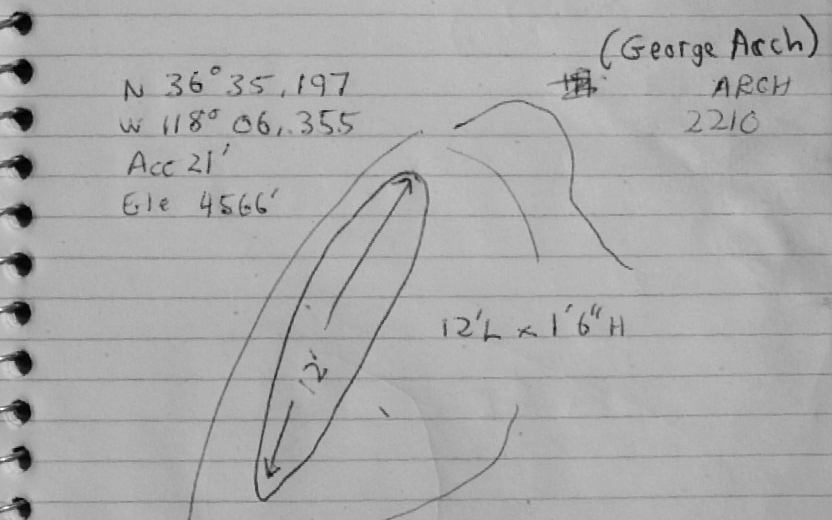 (George Arch)
N 36° 35.197
ARCH
W 118° 06.355
2210
Acc 21'
Ele 4566'
12'L x 1'6"H
12'